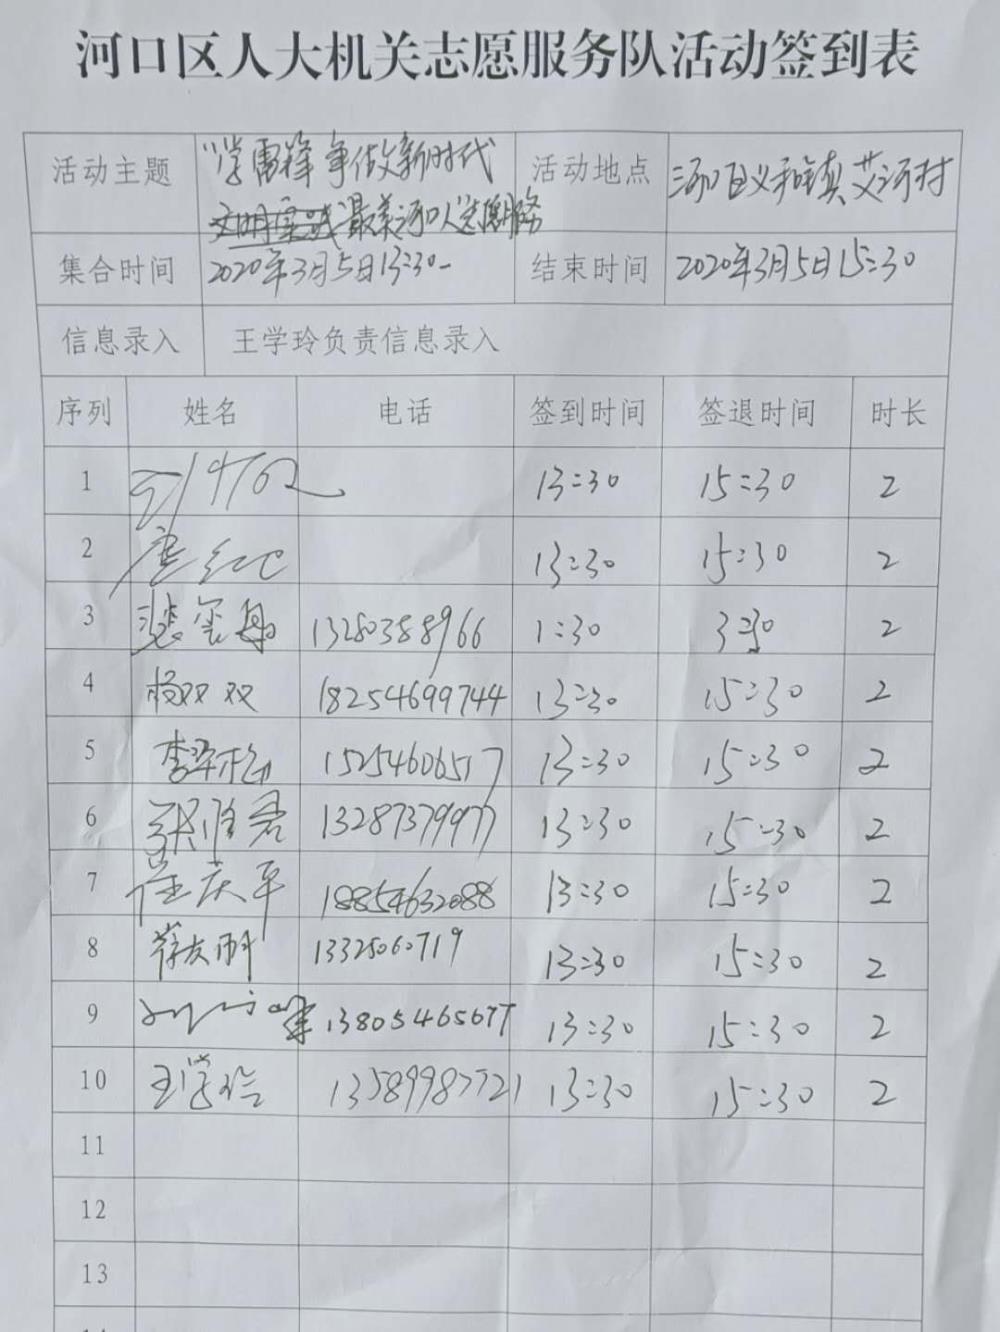 河口区人大机关志愿服务队活动签到表
活动主题 "学雷锋 争做新时代 活动地点 河口区义和镇艾河村
文明实践"最美河口人"志愿服务
集合时间 2020年3月5日13:30- 结束时间 2020年3月5日15:30
信息录入 王学玲负责信息录入
序列 姓名 电话 签到时间 签退时间 时长
1 13:30 15:30 2
2 13:30 15:30 2
3 13280388966 1:30 3:30 2
4 杨双双 18254699744 13:30 15:30 2
5 15254606517 13:30 15:30 2
6 13287379977 13:30 15:30 2
7 崔庆平 18854632088 13:30 15:30 2
8 13325060719 13:30 15:30 2
9 13805465677 13:30 15:30 2
10 王学玲 13589987721 13:30 15:30 2
11
12
13